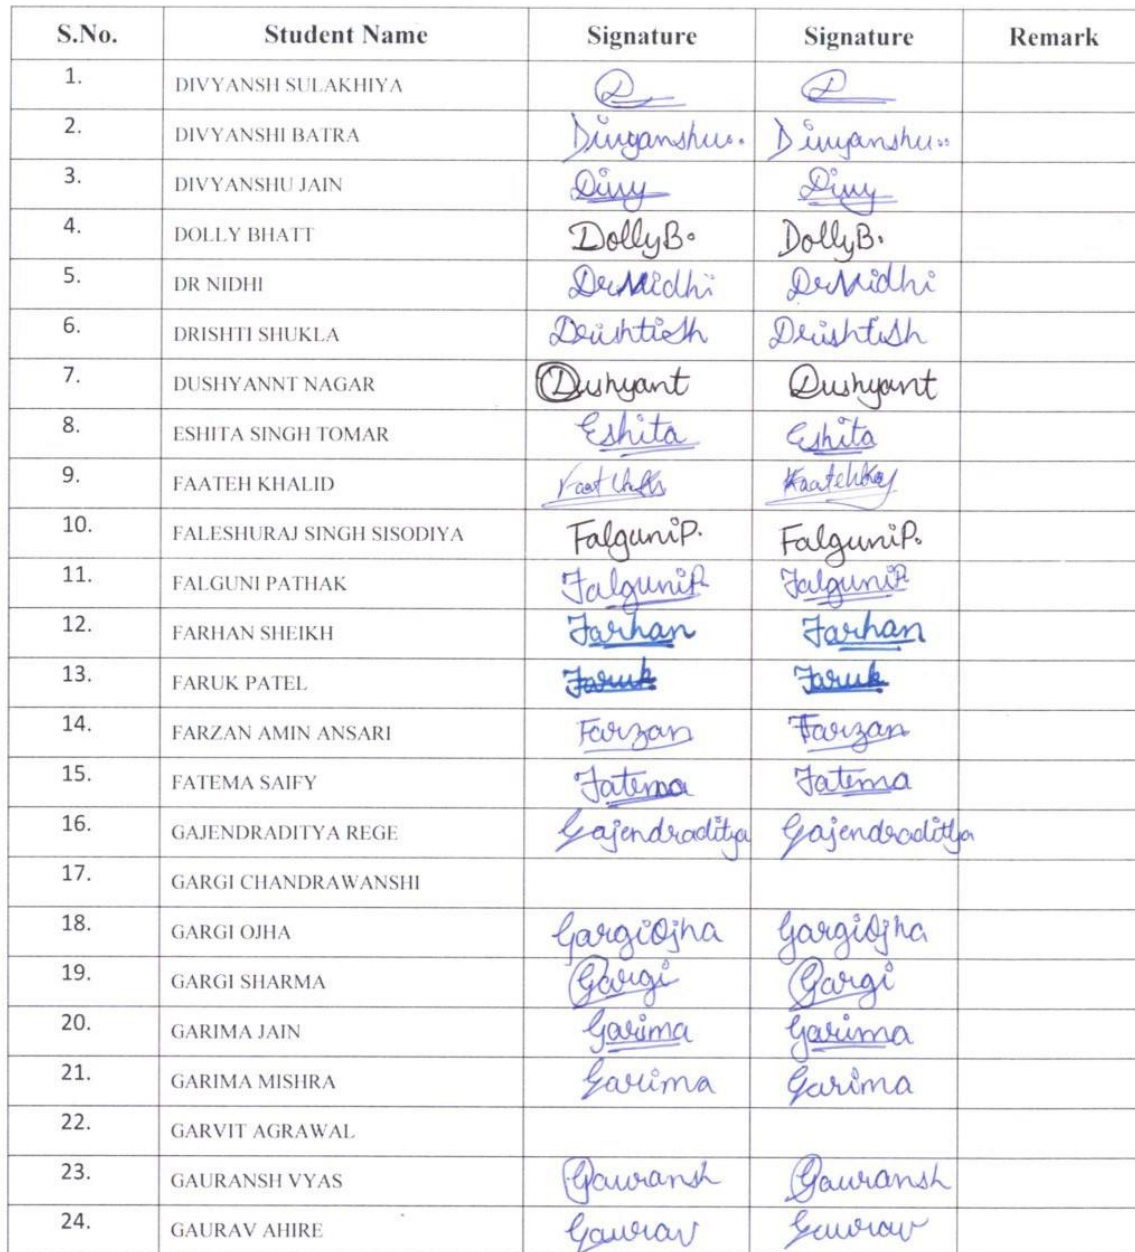 S.No. Student Name Signature Signature Remark
1. DIVYANSH SULAKHIYA D D
2. DIVYANSHI BATRA Divyanshu.. Divyanshu..
3. DIVYANSHU JAIN Divy Divy
4. DOLLY BHATT DollyB. DollyB.
5. DR NIDHI DrNidhi DrNidhi
6. DRISHTI SHUKLA DrishtiSh DrishtiSh
7. DUSHYANNT NAGAR Dushyant Dushyant
8. ESHITA SINGH TOMAR Eshita Eshita
9. FAATEH KHALID
10. FALESHURAJ SINGH SISODIYA FalguniP. FalguniP.
11. FALGUNI PATHAK FalguniP. FalguniP.
12. FARHAN SHEIKH Farhan Farhan
13. FARUK PATEL Faruk Faruk
14. FARZAN AMIN ANSARI Farzan Farzan
15. FATEMA SAIFY Fatema Fatema
16. GAJENDRADITYA REGE Gajendraditya Gajendraditya
17. GARGI CHANDRAWANSHI
18. GARGI OJHA GargiOjha GargiOjha
19. GARGI SHARMA Gargi Gargi
20. GARIMA JAIN Garima Garima
21. GARIMA MISHRA Garima Garima
22. GARVIT AGRAWAL
23. GAURANSH VYAS Gauransh Gauransh
24. GAURAV AHIRE Gaurav Gaurav